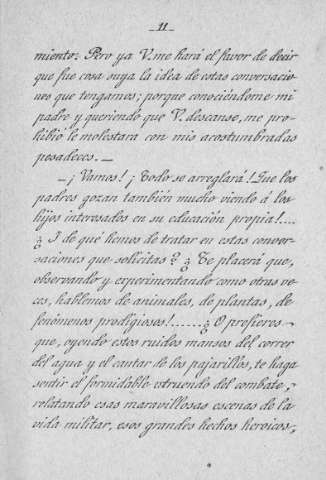 _11_
miento: Pero ya V. me hará el favor de decir
que fue cosa suya la idea de estas conversacio-
nes que tengamos; porque conociéndome mi
padre y queriendo que V. descanse, me pro-
hibió le molestara con mis acostumbradas
pesadeces. _
_ ¡Vamos! ¡Todo se arreglará! Que los
padres gozan también mucho viendo á los
hijos interesados en su educación propia!....
¿I de qué hemos de tratar en estas conver-
saciones que solicitas? ¿Te placerá que,
observando y experimentando como otras ve-
ces, hablemos de animales, de plantas, de
fenómenos prodigiosos!......¿O prefieres
que, oyendo estos ruidos mansos del correr
del agua y el cantar de los pajarillos, te haga
sentir el formidable estruendo del combate,
relatando esas maravillosas escenas de la
vida militar, esos grandes hechos heroicos,